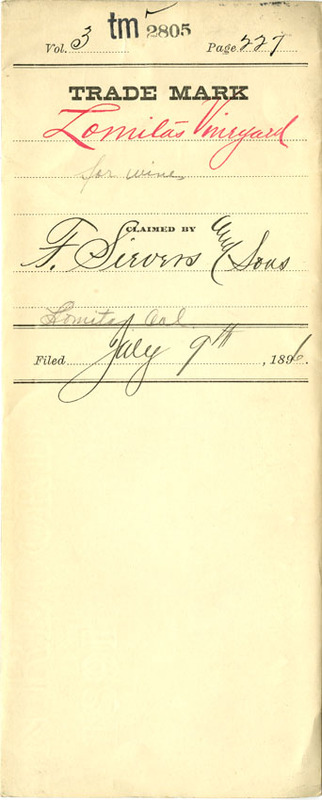 tm 2805
Vol. 3 Page 227
TRADE MARK
Lomitas Vineyard
for wine
CLAIMED BY
F. Sievers and Sons
Lomitas Cal
Filed July 9th, 1896.